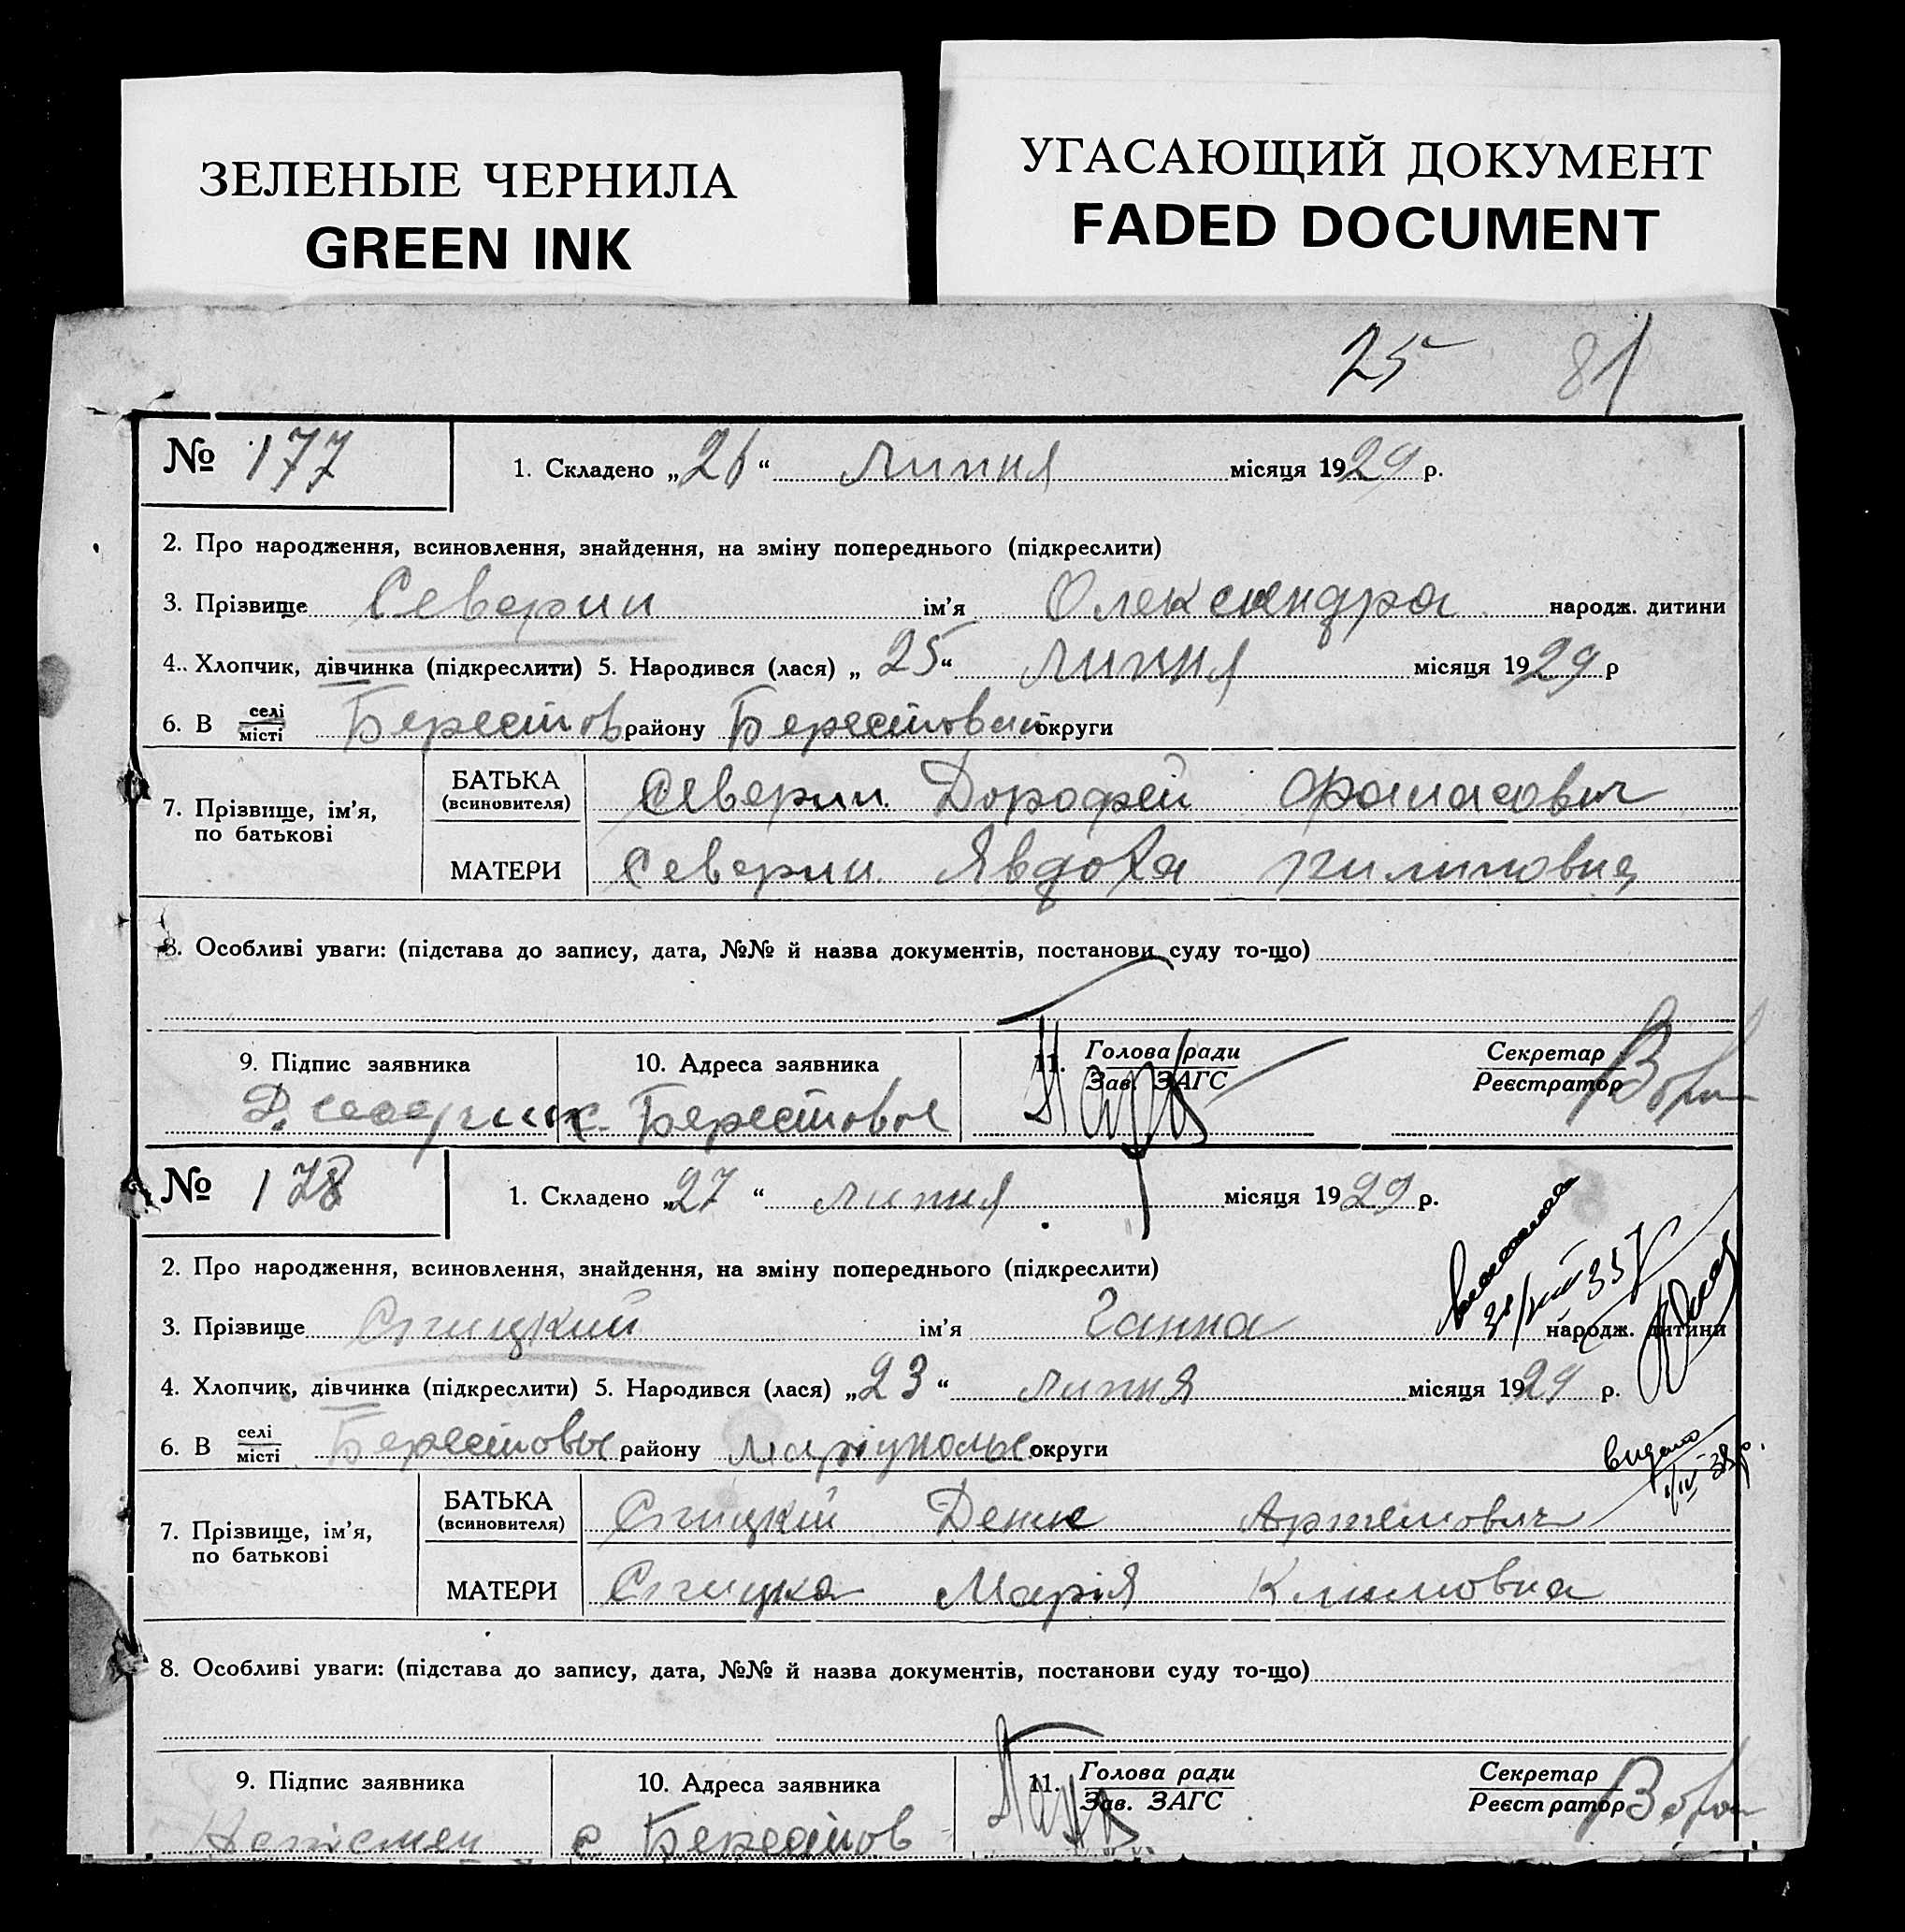 ЗЕЛЕНЫЕ ЧЕРНИЛА
GREEN INK
УГАСАЮЩИЙ ДОКУМЕНТ
FADED DOCUMENT
25 81
№ 177 1. Складено „26“ липня місяця 1929 р.
2. Про народження, всиновлення, знайдення, на зміну попереднього (підкреслити)
3. Прізвище Северин ім’я Олександра народж. дитини
4. Хлопчик, дівчинка (підкреслити) 5. Народився (лася) „25“ липня місяця 1929 р
6. В селі місті Берестов району Берестовський округи
7. Прізвище, ім’я, по батькові
БАТЬКА (всиновителя) Северин Дорофей Фанасович
МАТЕРИ Северин Явдоха Пилиповна
8. Особливі уваги: (підстава до запису, дата, №№ й назва документів, постанови суду то-що)
9. Підпис заявника 10. Адреса заявника 11. Голова ради Секретар
Зав. ЗАГС Реєстратор
Д. Северин с. Берестовое
№ 178 1. Складено „27“ липня місяця 1929 р.
2. Про народження, всиновлення, знайдення, на зміну попереднього (підкреслити)
3. Прізвище ім’я Ганна народж. дитини
4. Хлопчик, дівчинка (підкреслити) 5. Народився (лася) „23“ липня місяця 1929 р.
6. В селі місті Берестовое району Маріупольс округи
видано
7. Прізвище, ім’я, по батькові
БАТЬКА (всиновителя) Денис Артемович
МАТЕРИ Марія Климовна
8. Особливі уваги: (підстава до запису, дата, №№ й назва документів, постанови суду то-що)
9. Підпис заявника 10. Адреса заявника 11. Голова ради Секретар
Зав. ЗАГС Реєстратор
Неписмен с Берестов